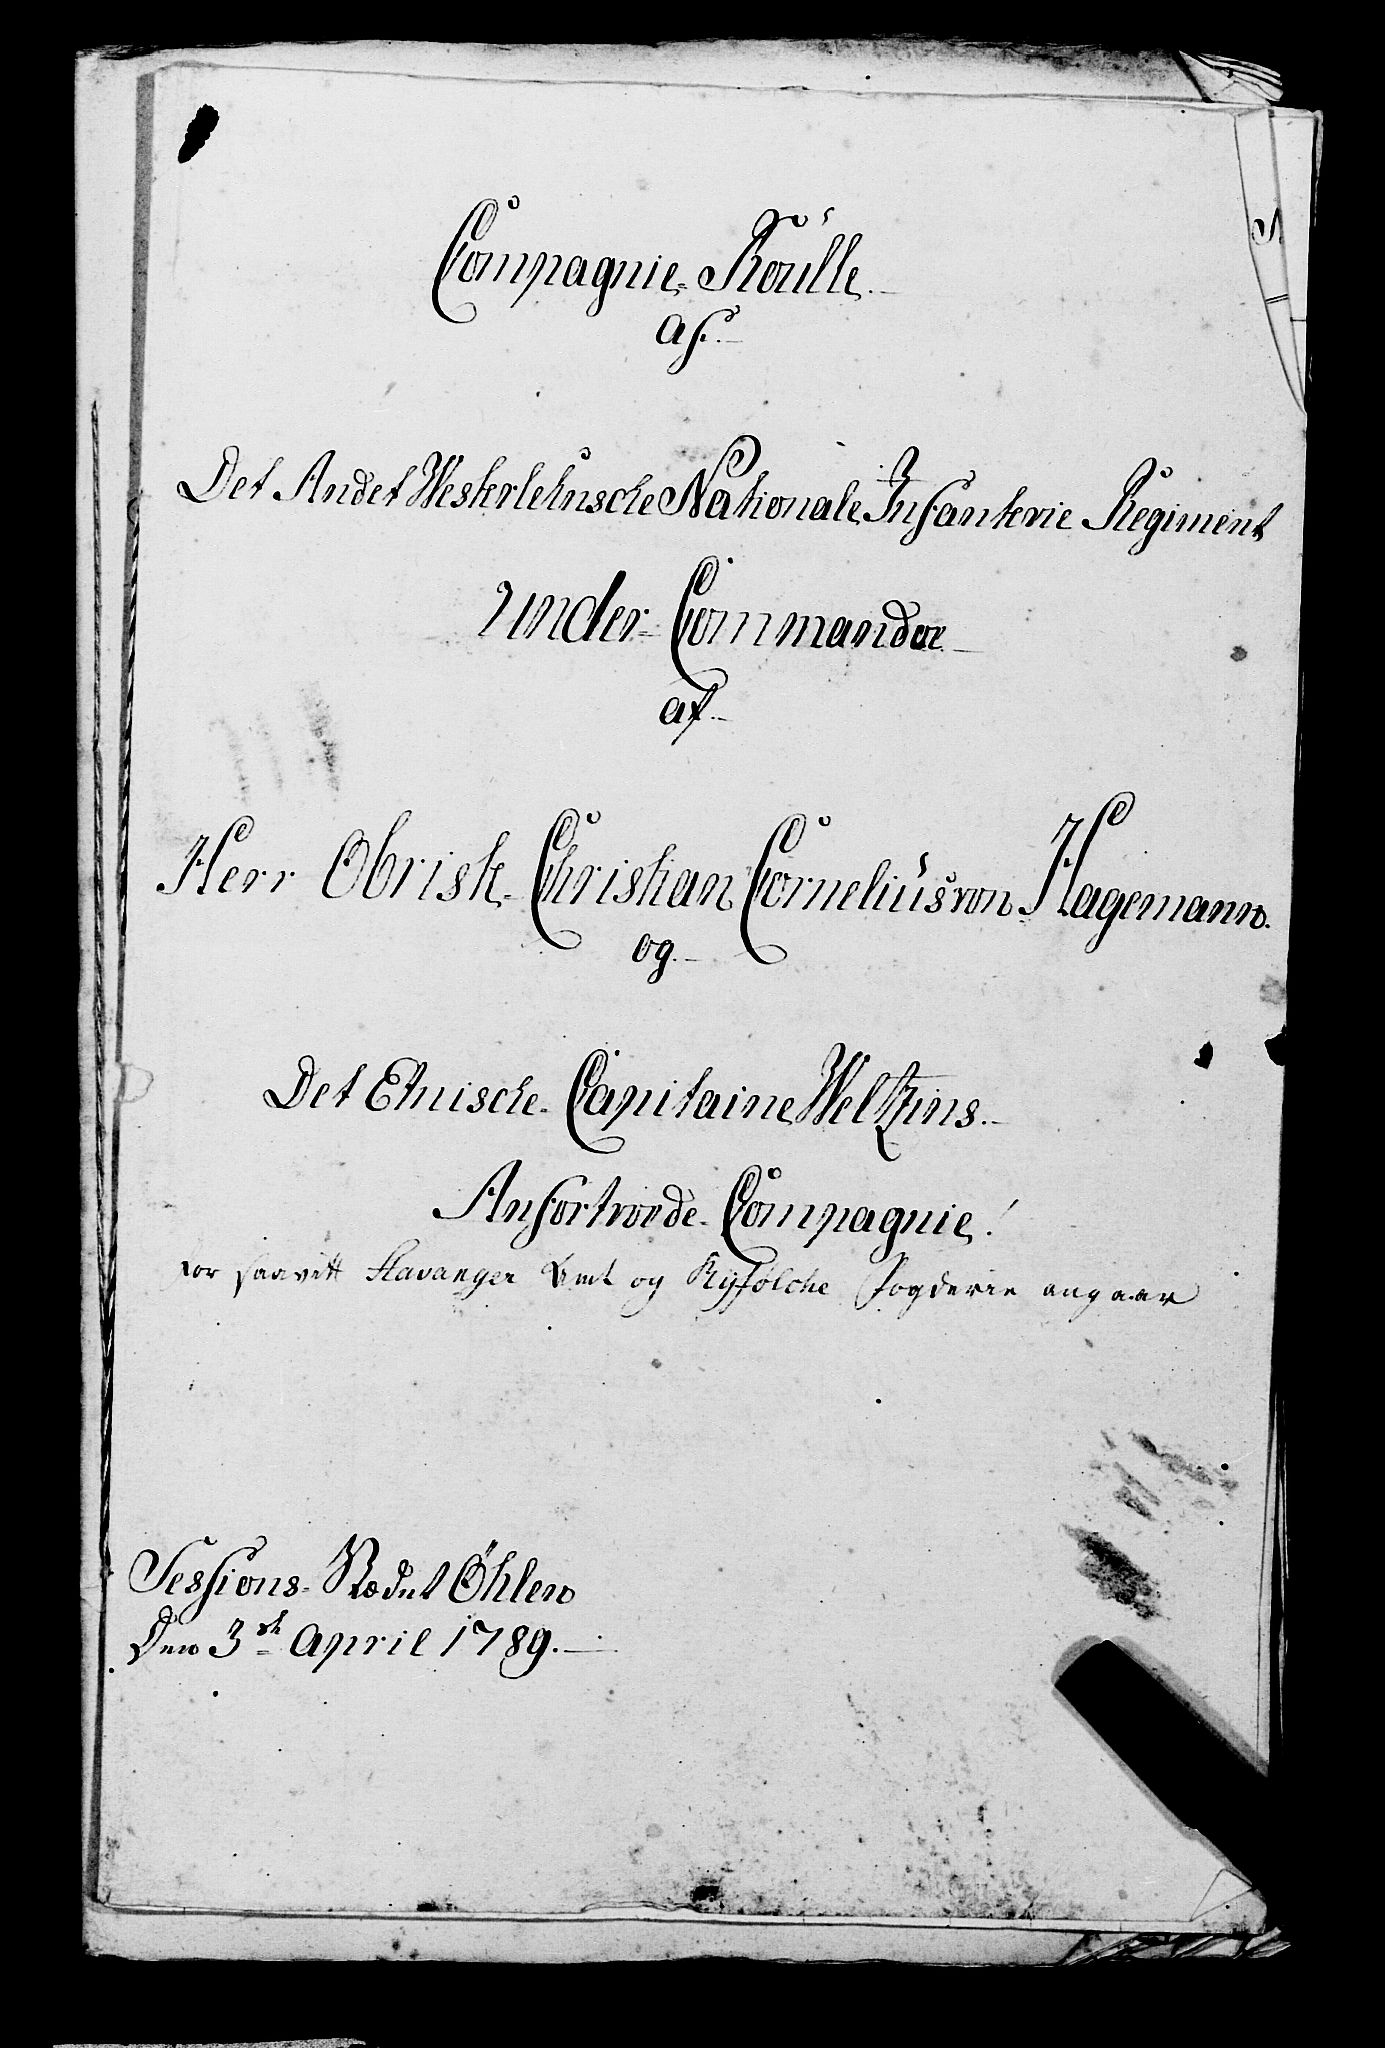 Compagnie-Roulle.
af.
Det Andet Westerlehnsche Nationale Infanterie Regiment
Under Commandoe
af.
Herr Obriste Christian Cornelius von Hagemann.
og.
Det Etnische Capitaine Weltzins.
Anfortroede Compagnie!
for saavitt Stavanger Amt og Ryfølche Fogderie angaar
Sessions-Stædet Øhlen
Den 3te April 1789.